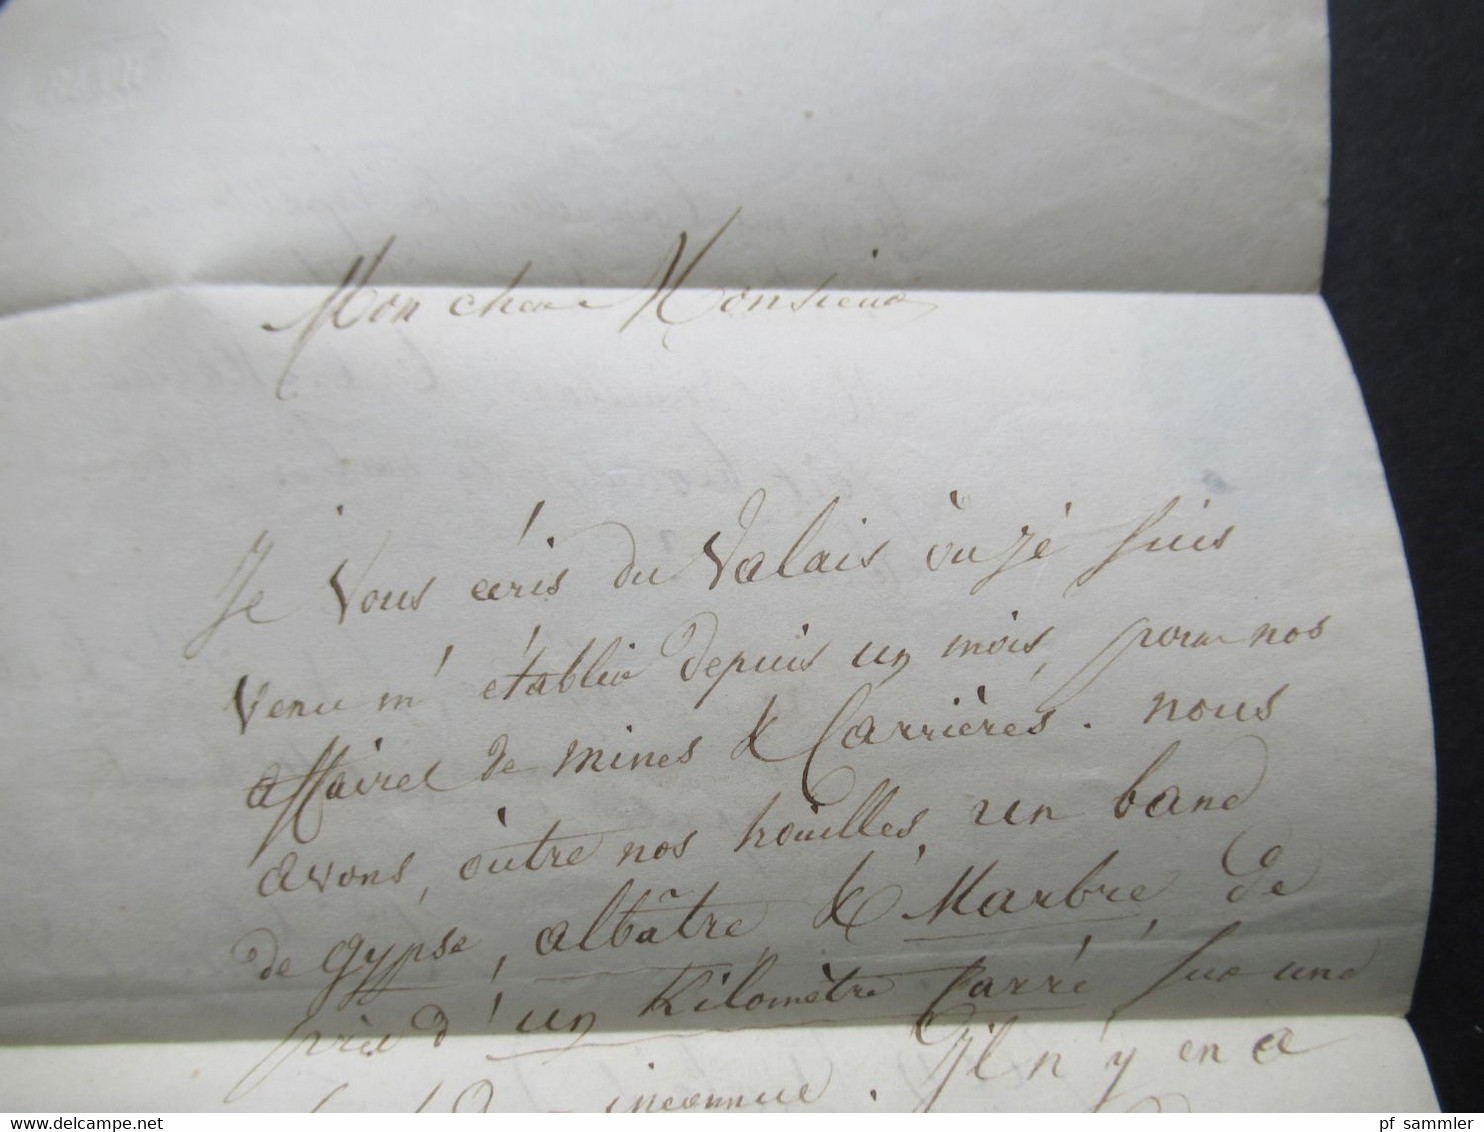 BATH
Mon cher Monsieur
Je vous écris du Valais òu je suis
venu m'établir depuis un mois, pour nos
affaires de mines & Carrières. nous
avons, òutre nos houilles, un banc
de gypse, albâtre, & Marbre, de
près d'un Kilomètre Carré, sur une
inconnue. Il n'y en a
pf sammler